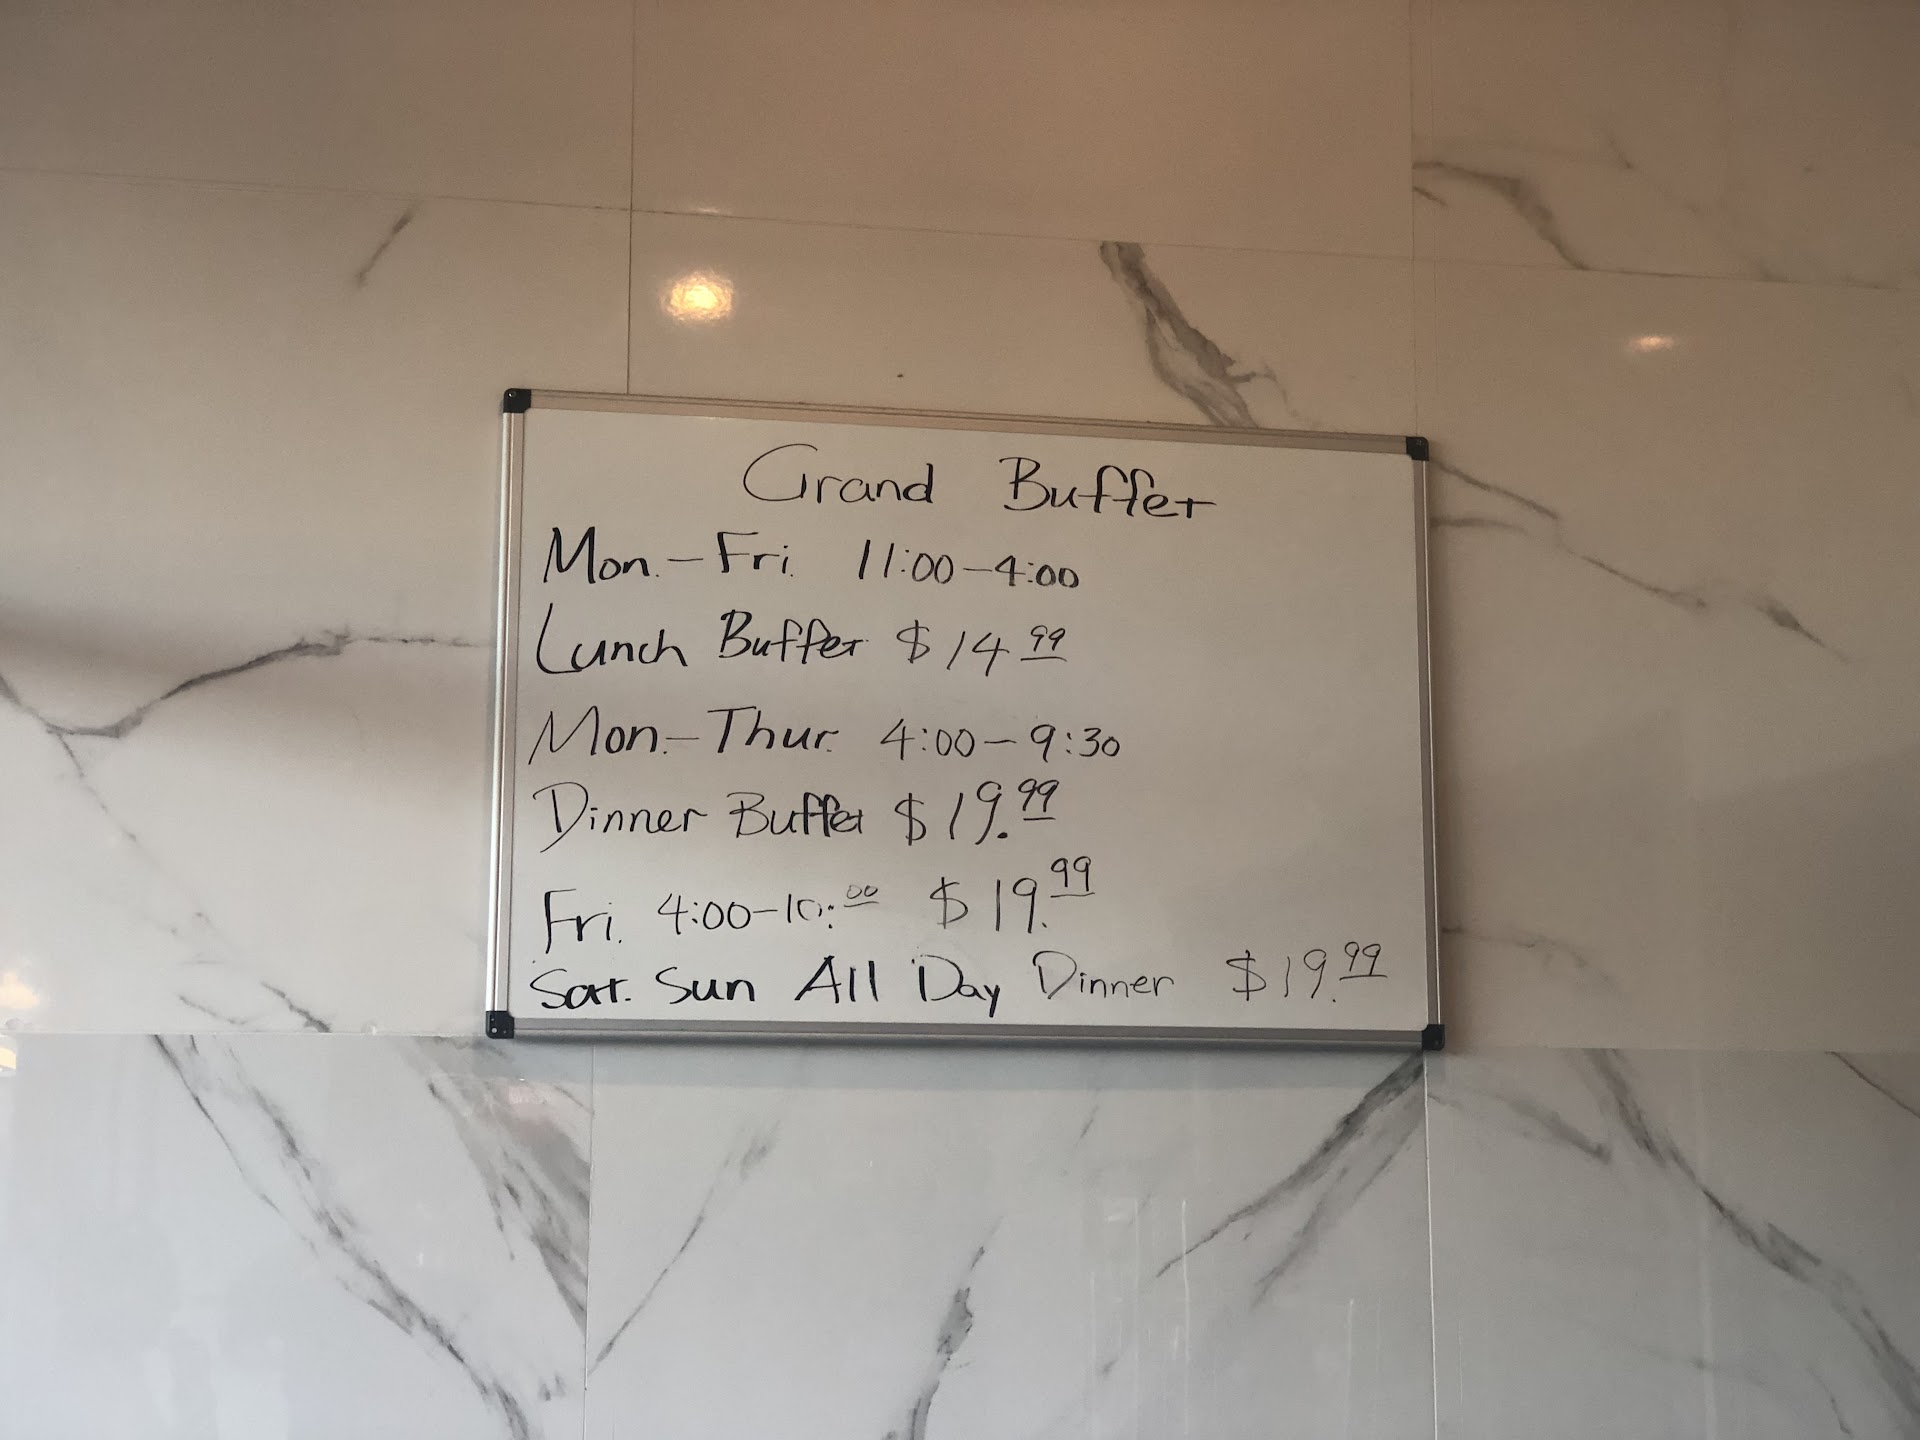 Grand Buffet
Mon.-Fri. 11:00-4:00
Lunch Buffet $14 99
Mon.-Thur. 4:00-9:30
Dinner Buffet $19.99
Fri. 4:00-10:00 $19.99
Sat. Sun All Day Dinner $19.99